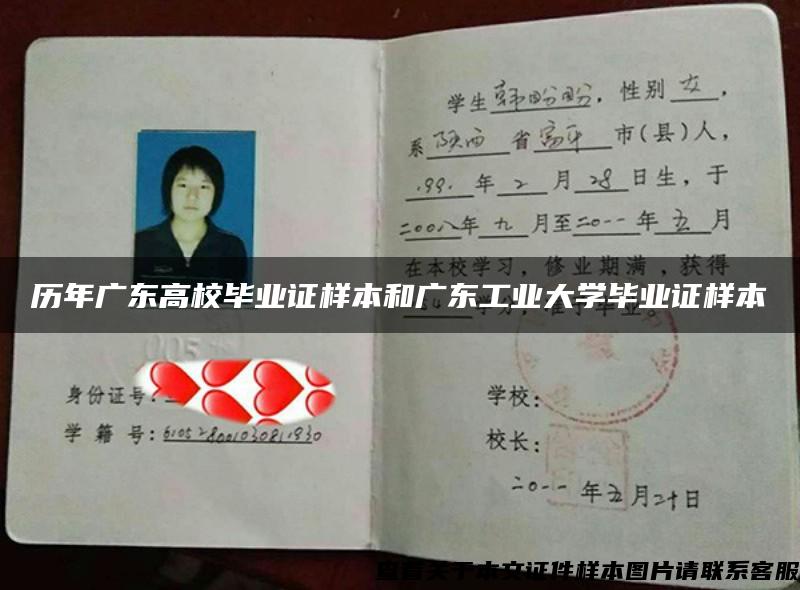 学生韩盼盼，性别女，
系陕西省富平市(县)人，
1991年2月28日生，于
二00八年九月至二0一一年五月
在本校学习，修业期满，获得
历年广东高校毕业证样本和广东工业大学毕业证样本
身份证号：
学籍号：
学校：
校长：
二0一一年五月二十日
查看关于本文证件样本图片请联系客服